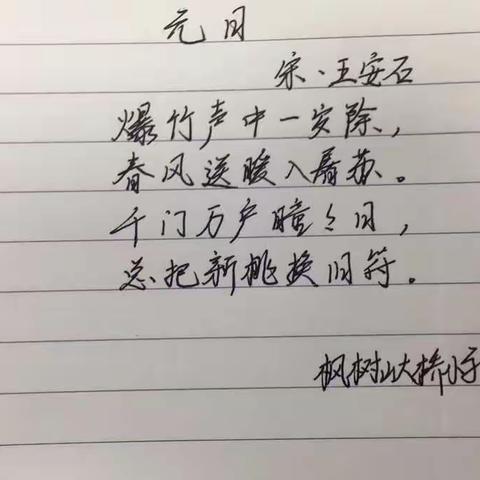 元日
宋·王安石
爆竹声中一岁除，
春风送暖入屠苏。
千门万户曈々日，
总把新桃换旧符。
枫树山大桥小学